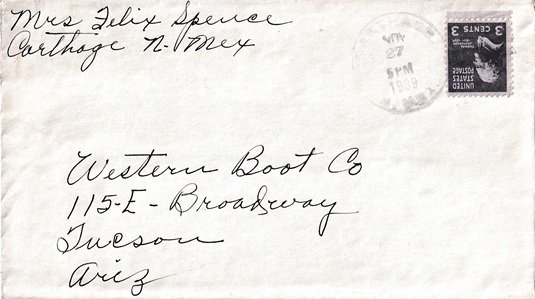 Mrs Felix Spence
Carthage N. Mex
NOV
27
5 PM
1939
UNITED
STATES
POSTAGE
THOMAS
JEFFERSON
3 CENTS 3
Western Boot Co
115-E-Broadway
Tucson
Ariz